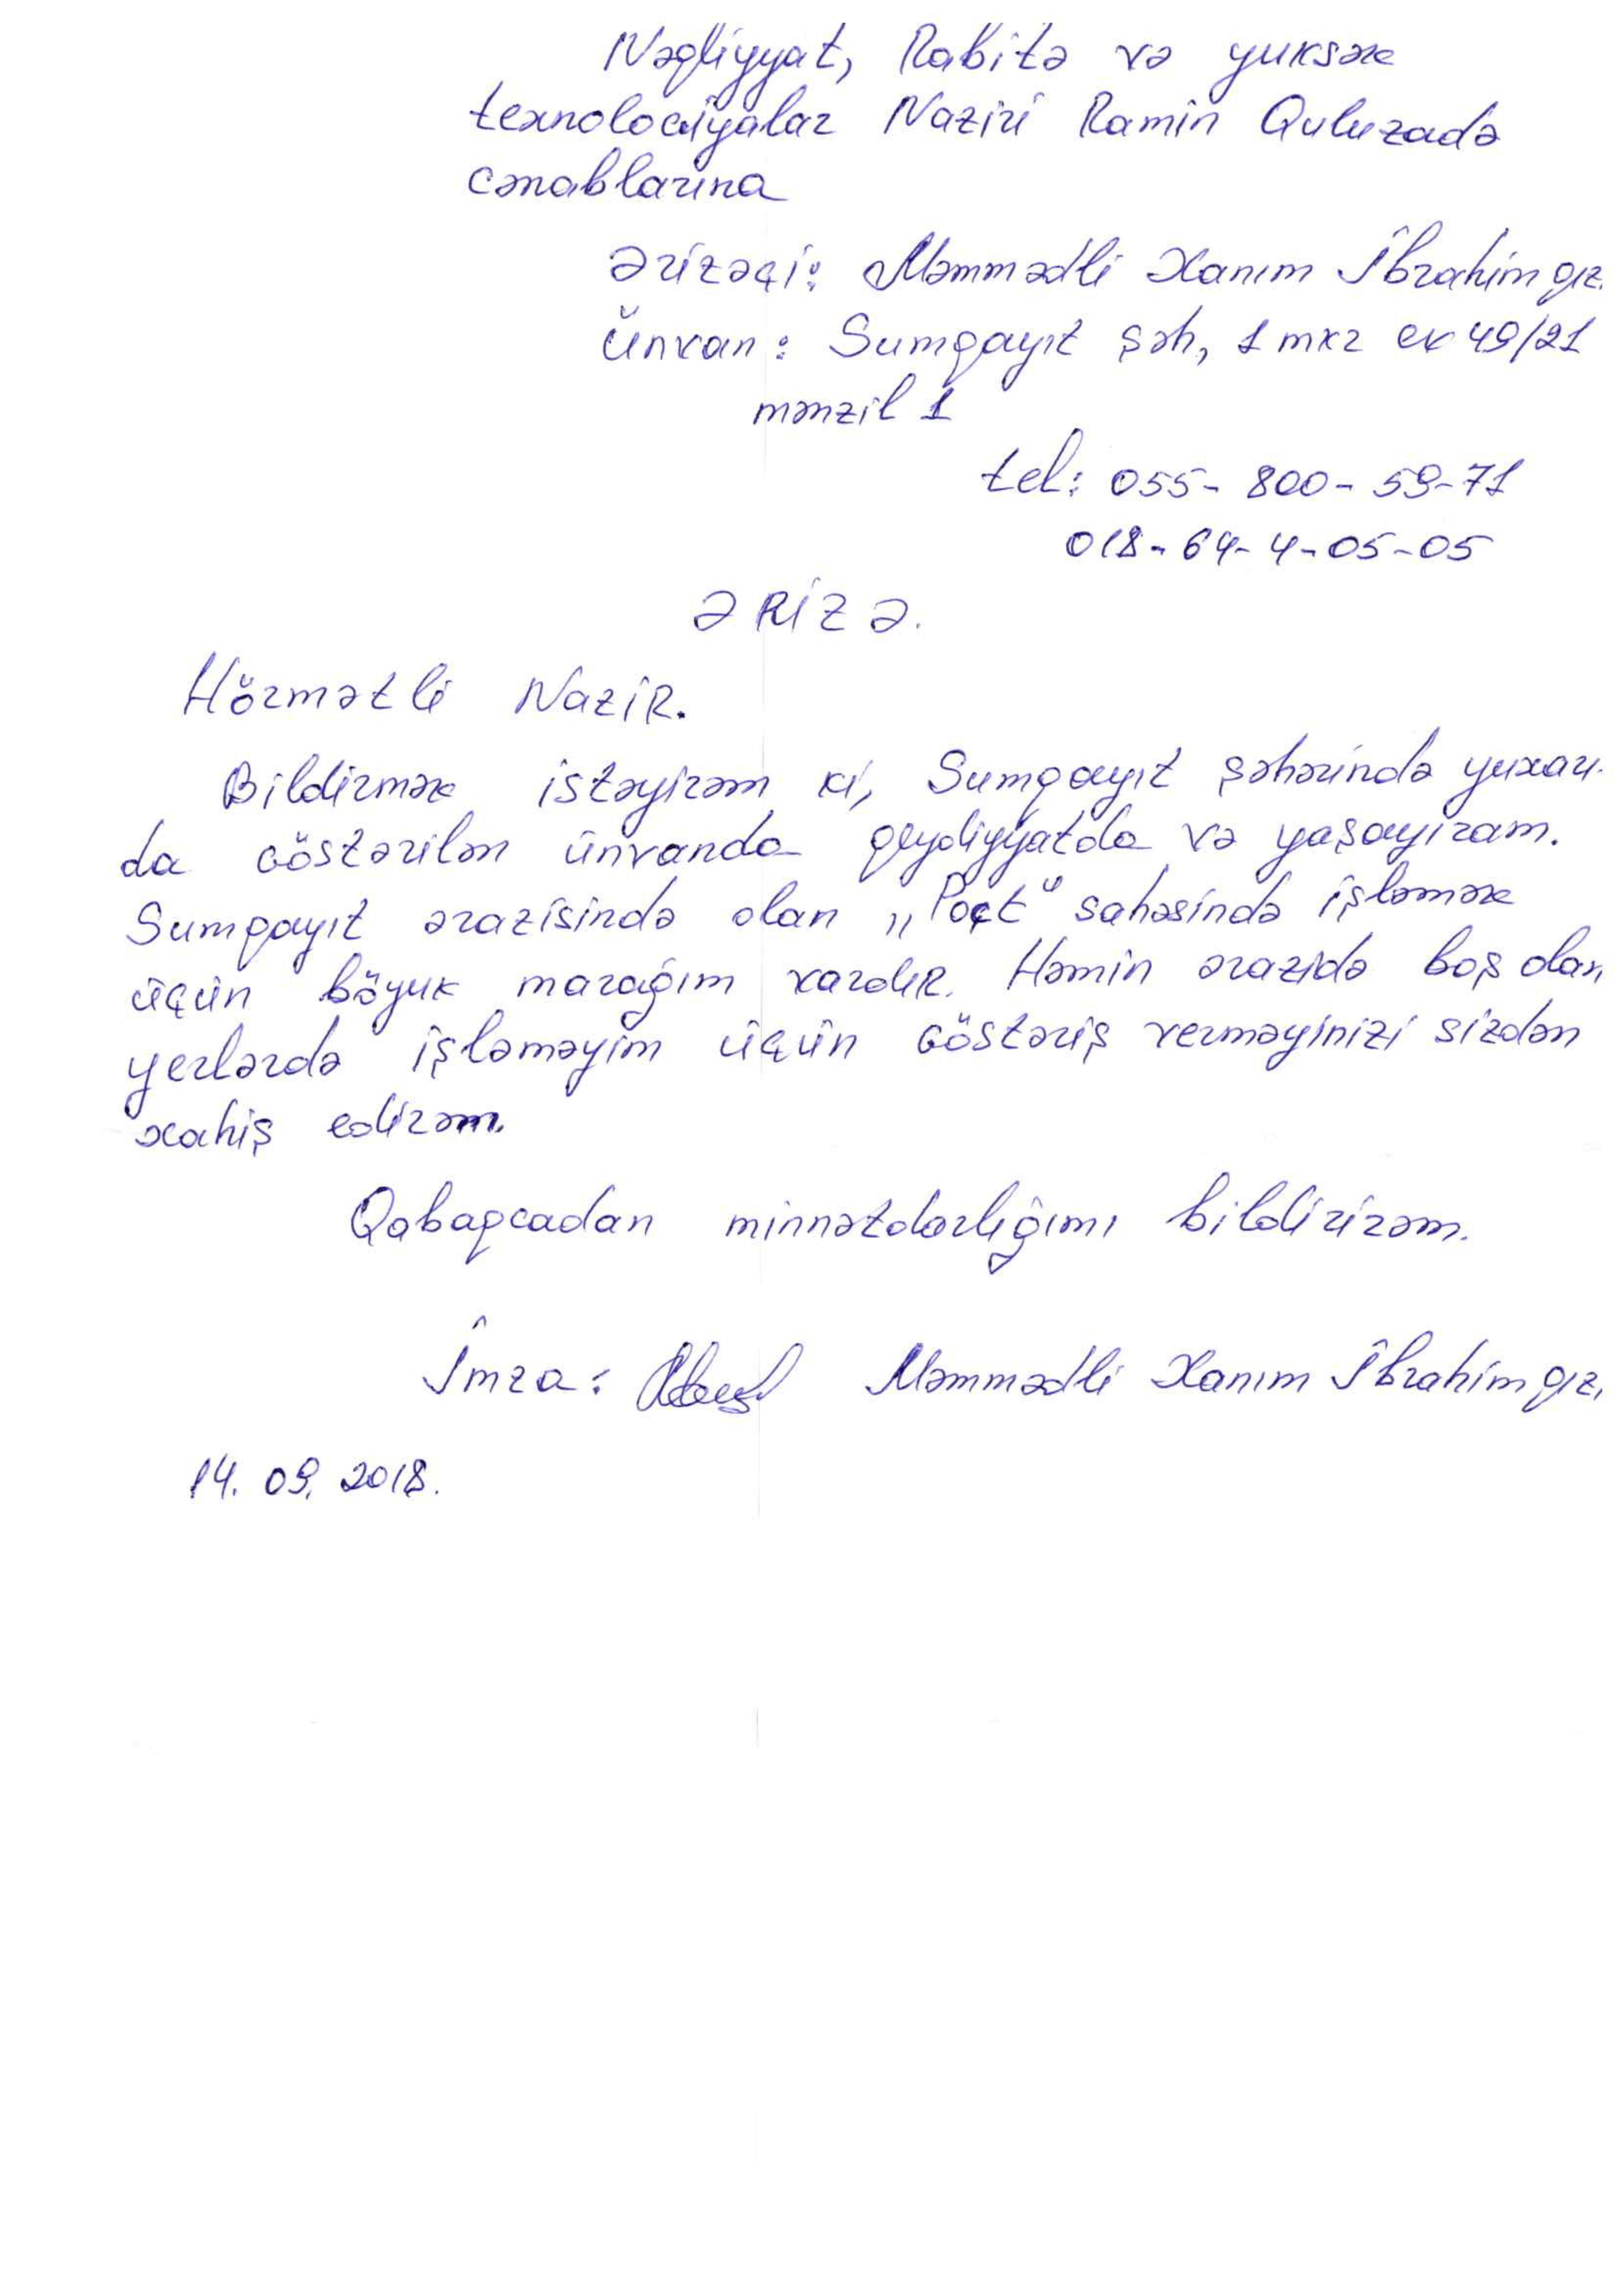 Nəqliyyat, Rabitə və yuksək
texnologiyalar Naziri Ramin Quluzadə
cənablarına
Ərizəçi: Məmmədli Xanım İbrahim qız
Ünvan: Sumqayıt şəh, 1 mkr ev 49/21
mənzil 1
tel: 055- 800- 59-71
018- 64- 4-05-05
ƏRİZƏ.
Hörmətli Nazir.
Bildirmək istəyirəm ki, Sumqayıt şəhərində yuxarı-
da göstərilən ünvanda qeydiyyatda və yaşayıram.
Sumqayıt ərazisində olan „Poçt“ sahəsində işləmək
üçün böyuk marağım vardır. Həmin ərazidə boş olan
yerlərdə işləməyim üçün göstəriş verməyinizi sizdən
xahiş edirəm.
Qabaqcadan minnətdarlığımı bildirirəm.
İmza: Məmmədli Xanım İbrahim qızı
14. 09. 2018.